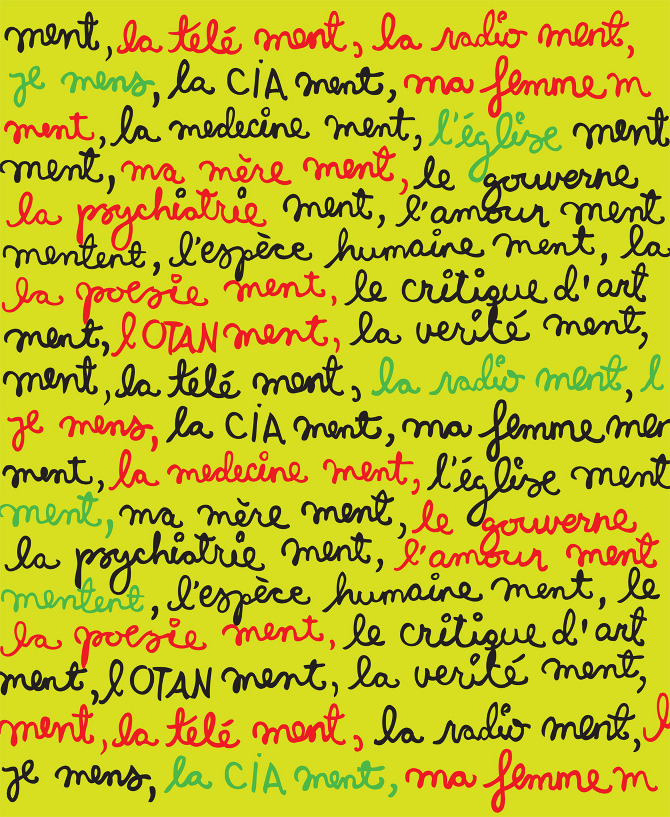 ment, la telé ment, la radio ment,
je mens, la CiA ment, ma femme m
ment, la medecine ment, l'église ment
ment, ma mère ment, le gouverne
la psychiatrie ment, l'amour ment
mentent, l'espèce humaine ment, la
la poesie ment, le critique d'art
ment, l OTAN ment, la verité ment,
ment, la telé ment, la radio ment, l
je mens, la CiA ment, ma femme men
ment, la medecine ment, l'église ment
ment, ma mère ment, le gouverne
la psychiâtrie ment, l'amour ment
mentent, l'espèce humaine ment, le
la poesie ment, le critique d'art
ment, l OTAN ment, la verité ment,
ment, la telé ment, la radio ment, l
je mens, la CiA ment, ma femme m